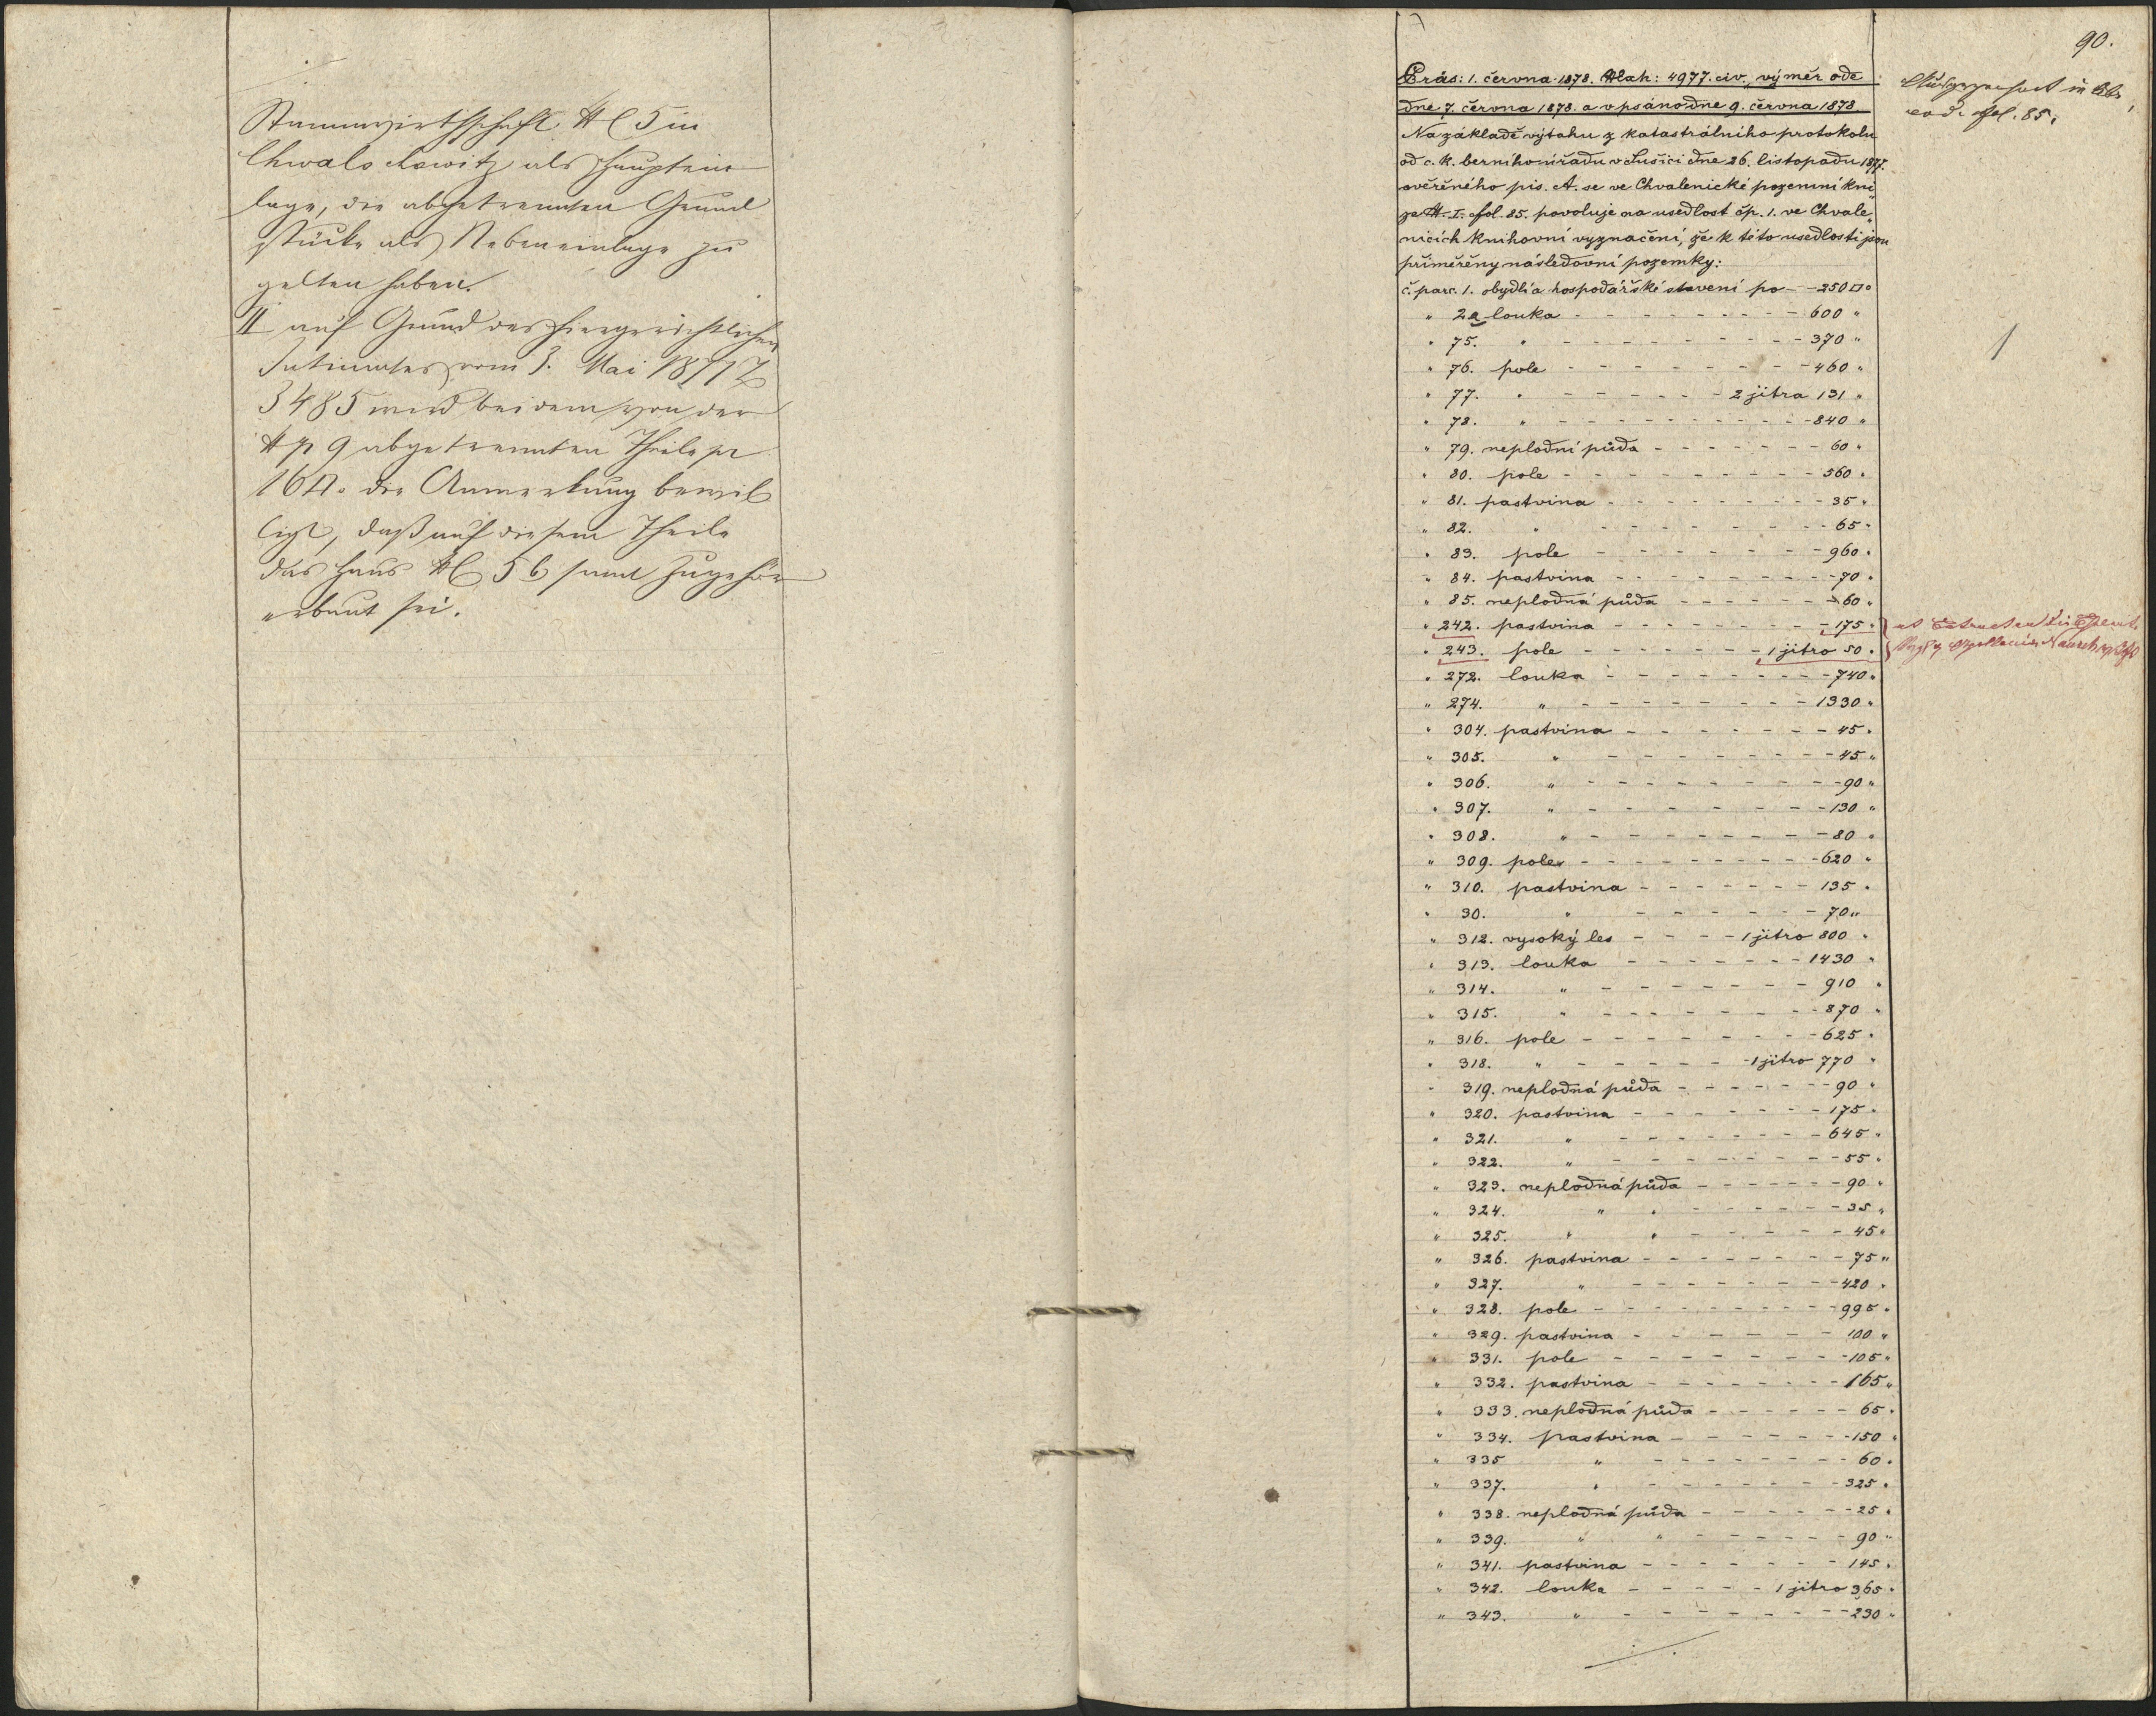 Stammwirthschaft NC 5 in
Chwalschowitz als Hauptein-
lage, die abgetrennten Grund
stücke als Nebeneinlage zu
gelten haben.
II auf Grund des hiergerichtlichen
Intimates vom 3. Mai 1871 Z
3485 wird bei dem von der
9 abgetrennten Theile pr
16 die Anmerkung bewil
ligt, daß auf diesem Theile
das Haus NC 56 samt Zugehör
erbaut sei.
90.
Präs: 1. června 1878. 4977. civ. výměr ode
dne 7. června 1878. a vpsáno dne 9. června 1878
Na základě výtahu z katastrálního protokolu
od c. k. berního úřadu v Sušici dne 26. listopadu 1877.
ověřeného pis. A. se ve Chvalenické pozemní kni
ze I. fol. 85. povoluje na usedlost čp. 1. ve Chvale„
nicích knihovní vyznačení, že k této usedlosti jsou
přiměřeny následovní pozemky:
č. parc. 1. obydlí a hospodářské stavení po - - 250 □°
" 2a louka - - - - - - - - - 600 "
" 75. " - - - - - - - - - - 370 "
" 76. pole - - - - - - - - 460 "
" 77. " - - - - - - 2 jitra 131 "
" 78. " - - - - - - - - - - 840 "
" 79. neplodní půda - - - - - - 60 "
" 80. pole - - - - - - - - - 560 "
" 81. pastvina - - - - - - - - 35 "
" 82. " - - - - - - - - 65 "
" 83. pole - - - - - - - - 960 "
" 84. pastvina - - - - - - - - 70 "
" 85. neplodná půda - - - - - - 60 "
" 242. pastvina - - - - - - - - 175 "
" 243. pole - - - - - - - 1 jitro 50 "
" 272. louka - - - - - - - - 740 "
" 274. " - - - - - - - - 1330 "
" 304. pastvina - - - - - - - 45 "
" 305. " - - - - - - - - 45 "
" 306. " - - - - - - - - - 90 "
" 307. " - - - - - - - - 130 "
" 308. " - - - - - - - - 80 "
" 309. pole - - - - - - - - - 620 "
" 310. pastvina - - - - - - - 135 "
" 30. " - - - - - - 70 "
" 312. vysoký les - - - - 1 jitro 800 "
" 313. louka - - - - - - - 1430 "
" 314. " - - - - - - - - 910 "
" 315. " - - - - - - - - 870 "
" 316. pole - - - - - - - - 625 "
" 318. " - - - - - - 1 jitro 770 "
" 319. neplodná půda - - - - - - 90 "
" 320. pastvina - - - - - - - 175 "
" 321. " - - - - - - - - 645 "
" 322. " - - - - - - - - 55 "
" 323. neplodná půda - - - - - - - 90 "
" 324. " " - - - - - - 35 "
" 325. " " - - - - - - 45 "
" 326. pastvina - - - - - - - - 75 "
" 327. " - - - - - - - - 420 "
" 328. pole - - - - - - - - - 995 "
" 329. pastvina - - - - - - - 100 "
" 331. pole - - - - - - - - - 105 "
" 332. pastvina - - - - - - - - 165 "
" 333. neplodná půda - - - - - - 65 "
" 334. pastvina - - - - - - - 150 "
" 335 " - - - - - - - - 60 "
" 337. " - - - - - - - - 325 "
" 338. neplodná půda - - - - - - 25 "
" 339. " " - - - - - - 90 "
" 341. pastvina - - - - - - - 145 "
" 342. louka - - - - - 1 jitro 365 "
" 343. " - - - - - - - - 230 "
fol. 85.